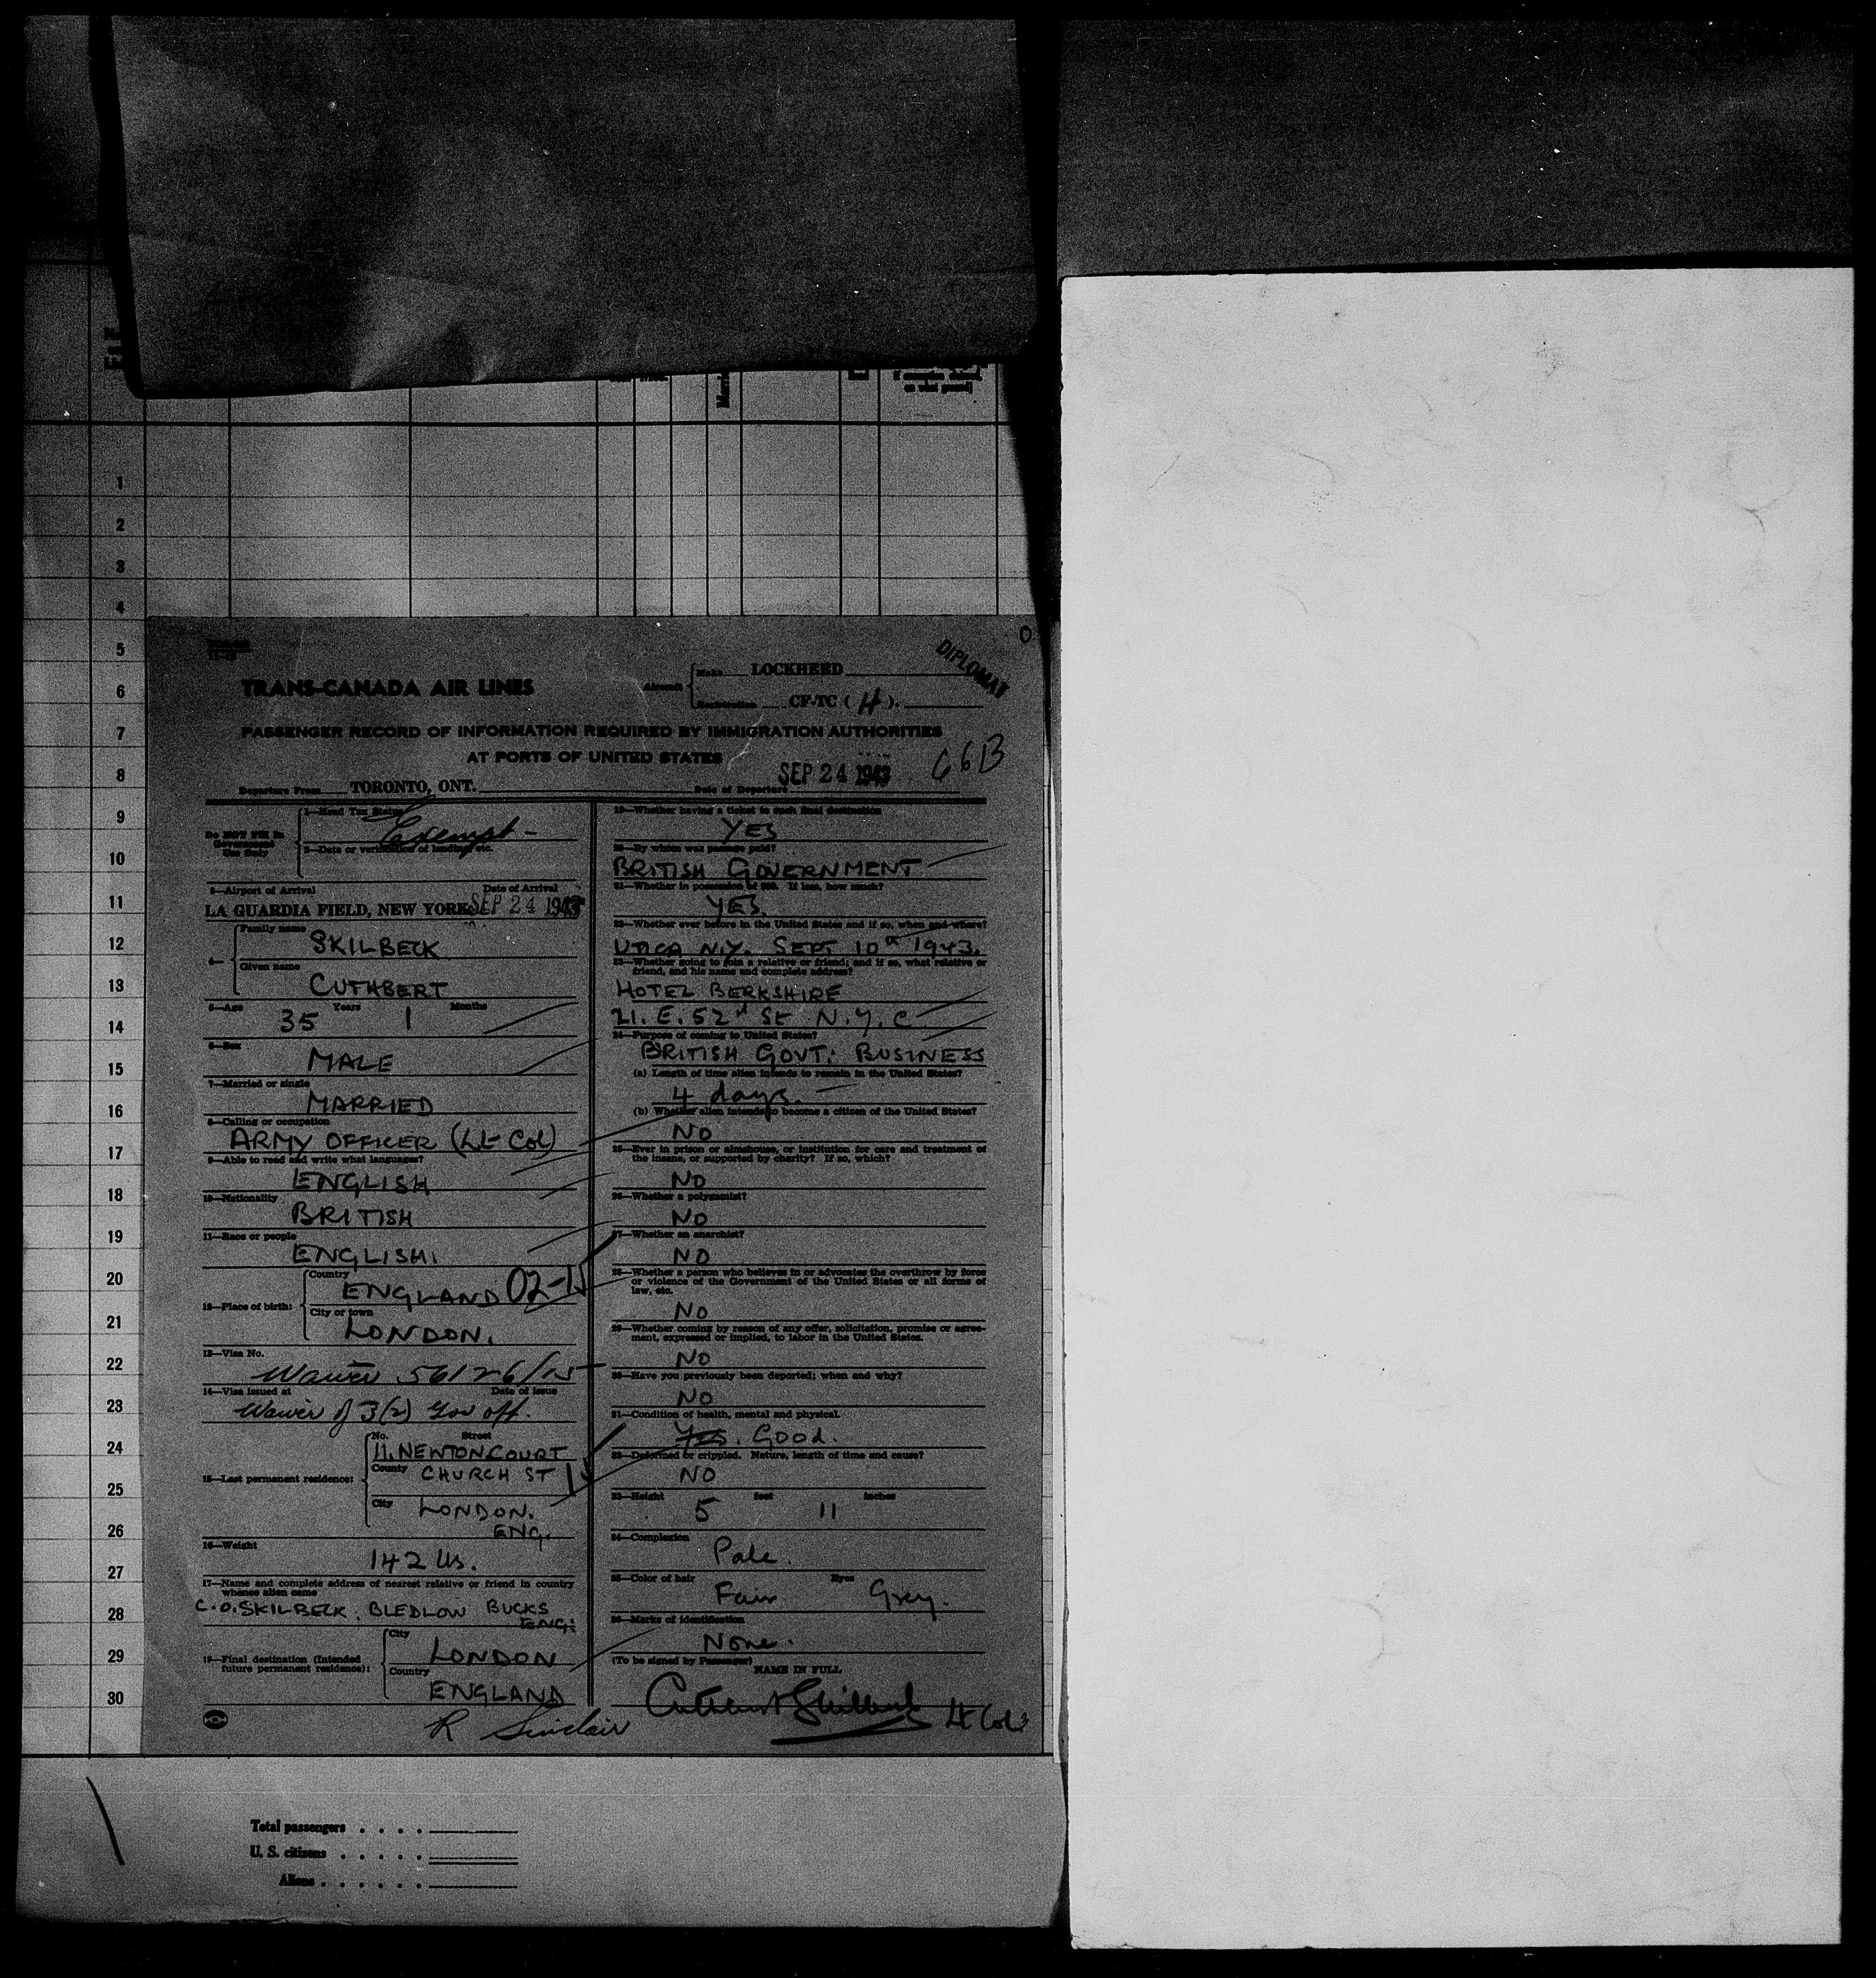 If
on what ground]
1
2
3
4
5
6
7
8
9
10
11
12
13
14
15
16
17
18
19
20
21
22
23
24
25
26
27
28
29
30
DIPLOMAT
TRANS-CANADA AIR LINES
Aircraft
Make LOCKHEED
Registration CF-TC (H).
PASSENGER RECORD OF INFORMATION REQUIRED BY IMMIGRATION AUTHORITIES
AT PORTS OF UNITED STATES
66B
Departure From TORONTO, ONT.
Date of Departure SEP 24 1943
Do NOT Fill In
Government
Use Only
1—Head Tax Status
Exempt -
2—Date or verification of landing, etc.
3—Airport of Arrival Date of Arrival
LA GUARDIA FIELD, NEW YORK SEP 24 1943
4— Family name
SKILBECK
Given name
CUTHBERT
5—Age 35 Years 1 Months
6—Sex
MALE
7—Married or single
MARRIED
8—Calling or occupation
ARMY OFFICER (Lt Col)
9—Able to read and write what languages?
ENGLISH
10—Nationality
BRITISH
11—Race or people
ENGLISH.
12—Place of birth:
Country
ENGLAND
City or town
LONDON.
13—Visa No.
Waiver 56126/15
14—Visa issued at Date of issue
Waiver of 3(2) Gov off.
15—Last permanent residence:
No. Street
11. NEWTON COURT
County CHURCH ST
City LONDON.
ENG.
16—Weight
142 lbs.
17—Name and complete address of nearest relative or friend in country
whence alien came
C.O. SKILBECK. BLEDLOW BUCKS
ENG:
18—Final destination (Intended
future permanent residence):
City
LONDON
Country
ENGLAND
R Sinclair
19—Whether having a ticket to such final destination
YES
20—By whom was passage paid?
BRITISH GOVERNMENT
21—Whether in possession of $50. If less, how much?
YES.
22—Whether ever before in the United States and if so, when and where?
UTICA N.Y. SEPT 10th 1943.
23—Whether going to join a relative or friend; and if so, what relative or
friend, and his name and complete address?
HOTEL BERKSHIRE
21. E. 52d St N.Y.C.
24—Purpose of coming to United States?
BRITISH GOVT: BUSINESS
(a) Length of time alien intends to remain in the United States?
4 days.
(b) Whether alien intends to become a citizen of the United States?
NO
25—Ever in prison or almshouse, or institution for care and treatment of
the insane, or supported by charity? If so, which?
NO
26—Whether a polygamist?
NO
27—Whether an anarchist?
NO
28—Whether a person who believes in or advocates the overthrow by force
or violence of the Government of the United States or all forms of
law, etc.
NO
29—Whether coming by reason of any offer, solicitation, promise or agree-
ment, expressed or implied, to labor in the United States.
NO
30—Have you previously been deported; when and why?
NO
31—Condition of health, mental and physical.
Yes. Good.
32—Deformed or crippled. Nature, length of time and cause?
NO
33—Height 5 feet 11 inches
34—Complexion
Pale.
35—Color of hair Fair Eyes Grey.
36—Marks of identification
None.
(To be signed by Passenger)
NAME IN FULL
Cuthbert Skilbeck Lt Col
Total passengers . . . .
U. S. citizens . . . . .
Aliens . . . . . .